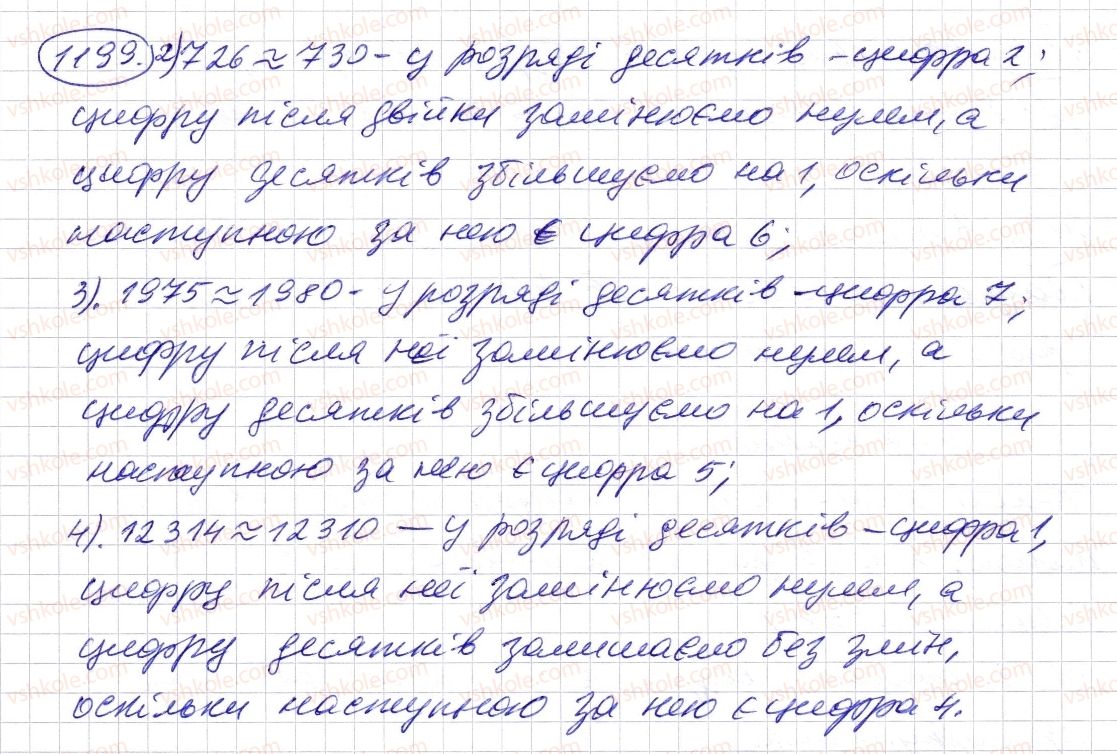 1199. 2) 726 ≈ 730 - у розряді десятків - цифра 2;
цифру після двійки замінюємо нулем, а
цифру десятків збільшуємо на 1, оскільки
наступною за нею є цифра 6;
3). 1975 ≈ 1980 - у розряді десятків - цифра 7;
цифру після неї замінюємо нулем, а
цифру десятків збільшуємо на 1, оскільки
наступною за нею є цифра 5;
4). 12314 ≈ 12310 — у розряді десятків - цифра 1,
цифру після неї замінюємо нулем, а
цифру десятків залишаємо без змін,
оскільки наступною за нею є цифра 4.